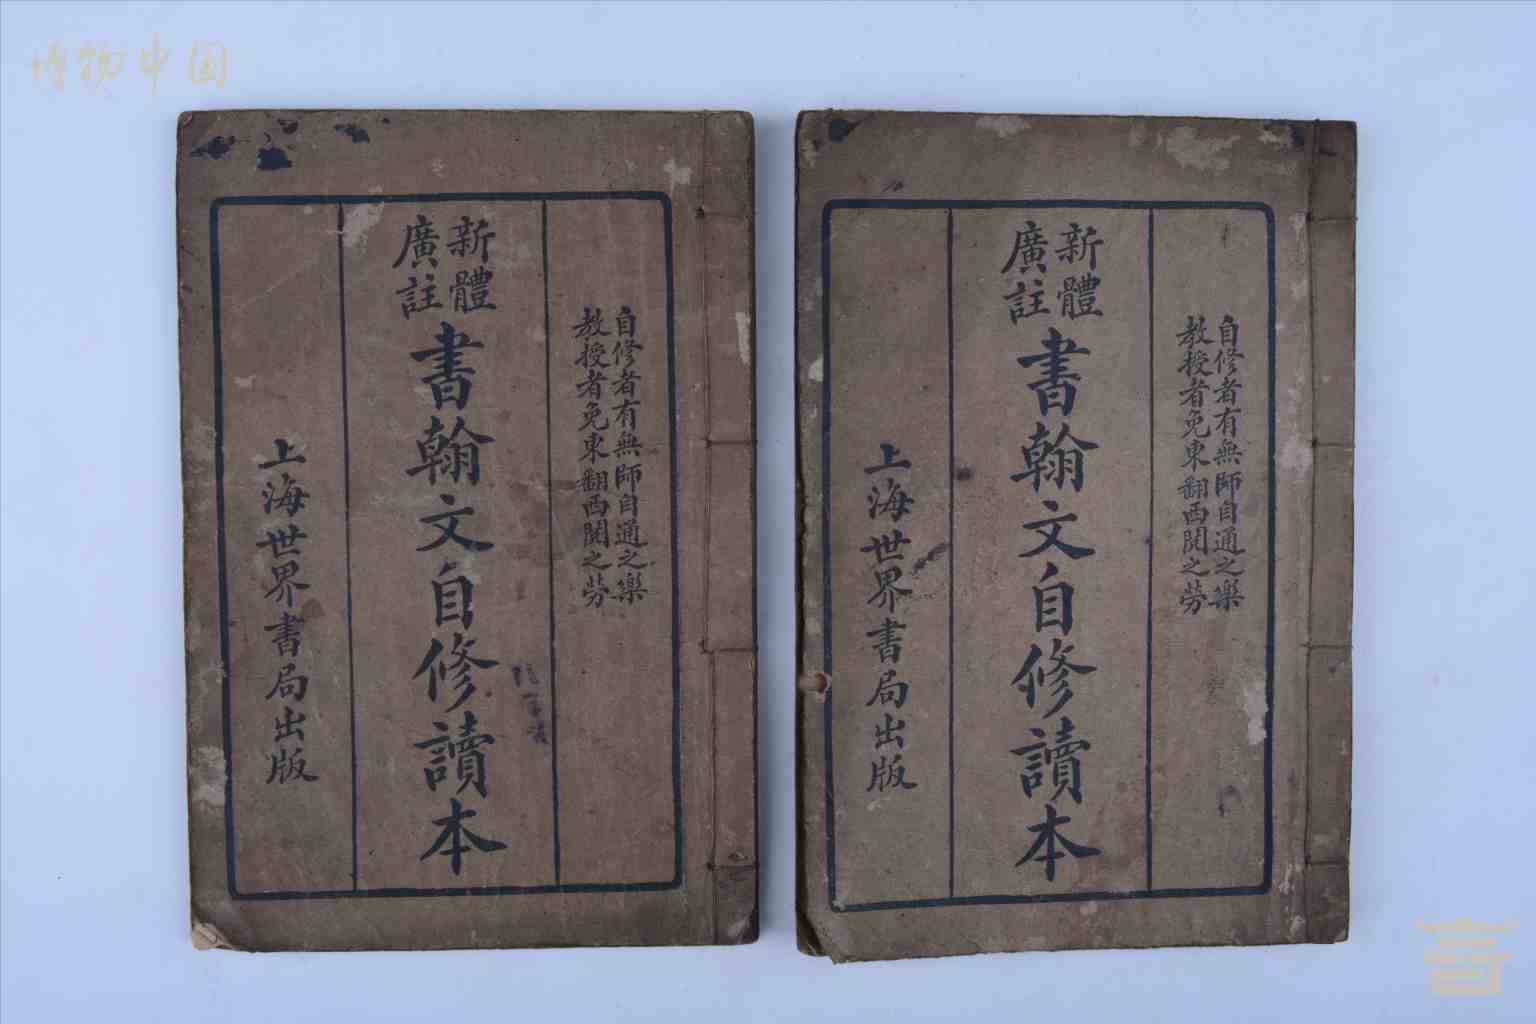 博物中国
自修者有無師自通之樂
教授者免東翻西閱之勞
新體
廣註
書翰文自修讀本
上海世界書局出版
自修者有無師自通之樂
教授者免東翻西閱之勞
新體
廣註
書翰文自修讀本
上海世界書局出版